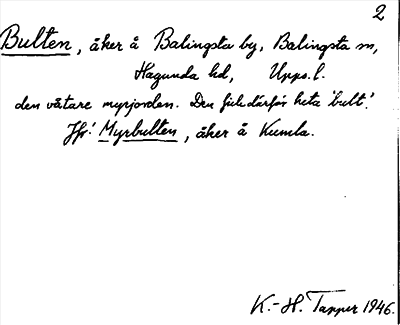 2
Bulten, åker å Balingsta by, Balingsta sn,
Hagunda hd, Upps. l.
den våtare myrjorden. Den fick därför heta 'bult'.
Jfr: Myrbulten, åker å Kumla.
K.-H. Tapper 1946.